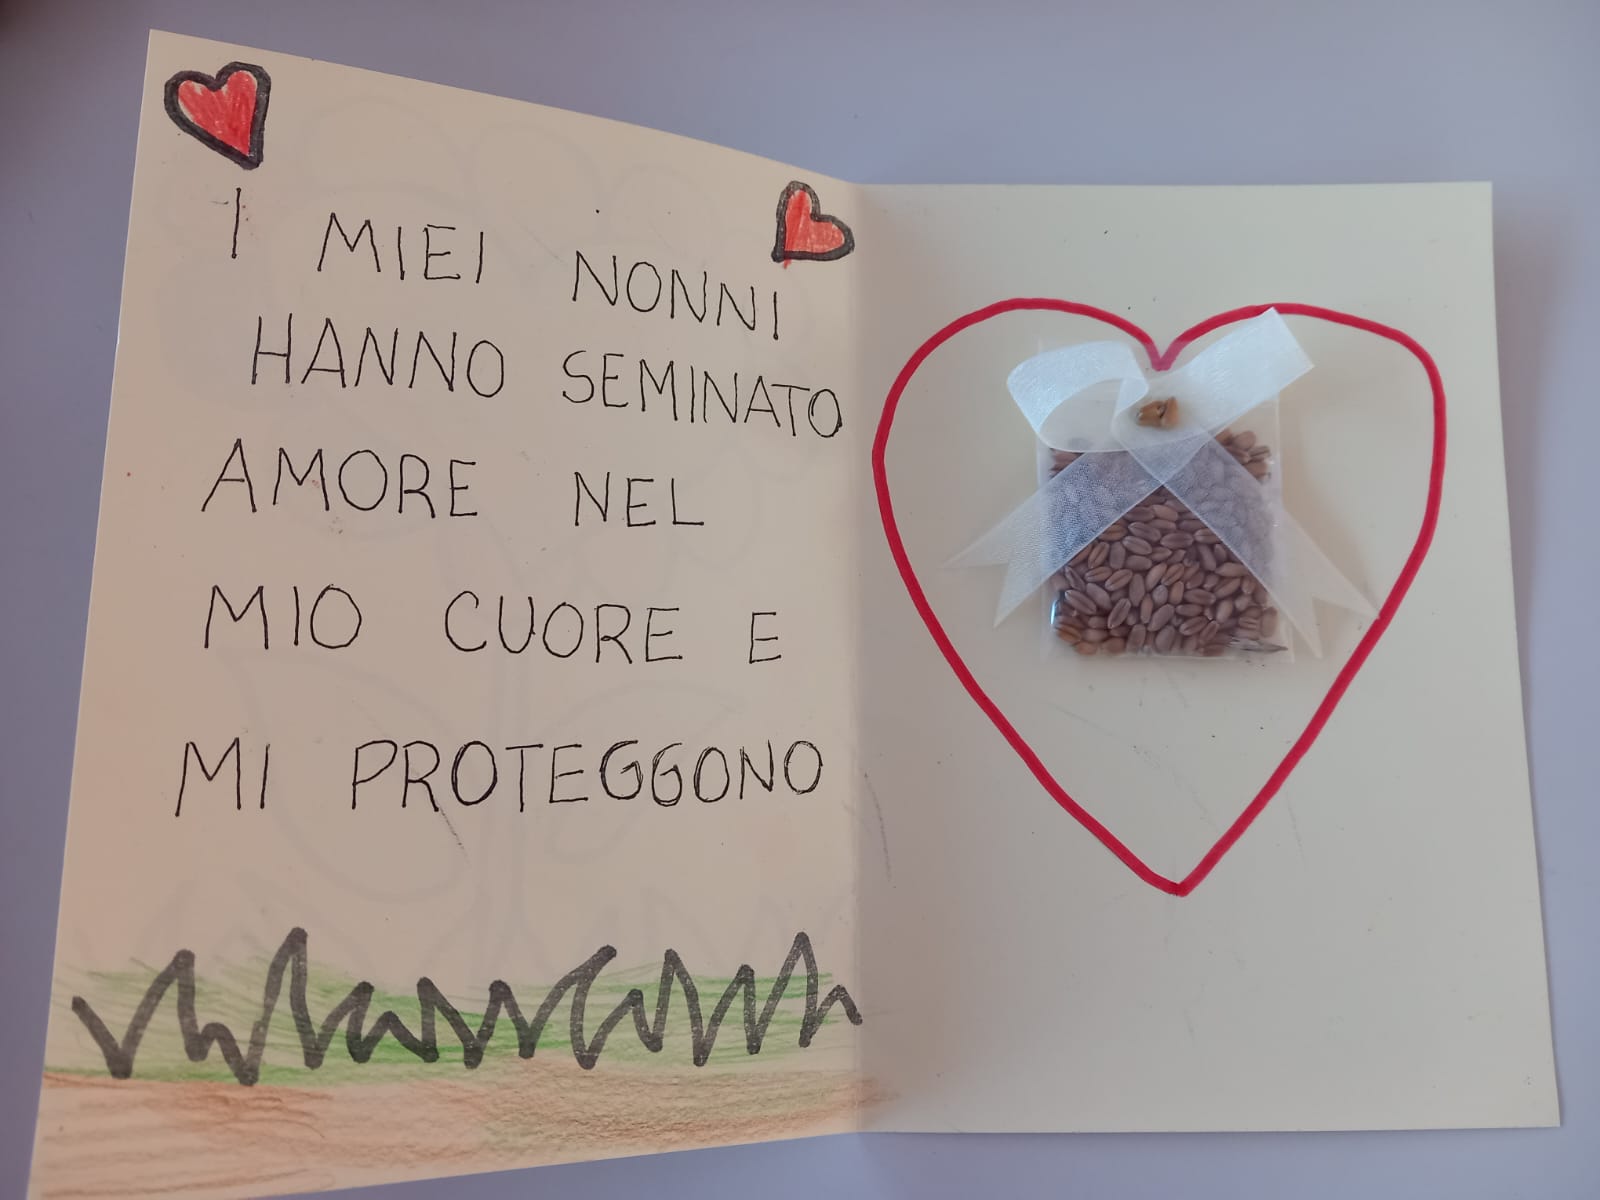 I MIEI NONNI
HANNO SEMINATO
AMORE NEL
MIO CUORE E
MI PROTEGGONO